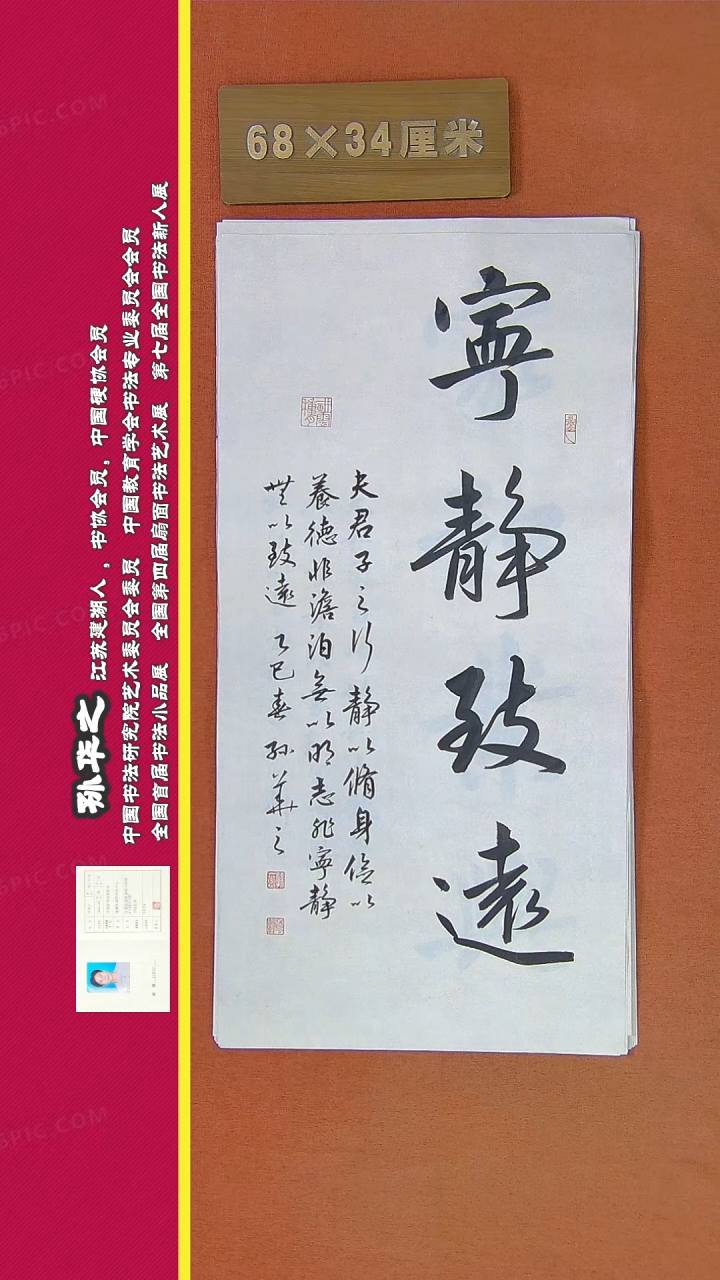 68×34厘米
寧靜致遠
夫君子之行靜以脩身儉以
養德非澹泊無以明志非寧靜
無以致遠 乙巳春 孙華之
孙华之 江苏建湖人，书协会员，中国硬协会员
中国书法研究院艺术委员会委员 中国教育学会书法专业委员会会员
全国首届书法小品展 全国第四届扇面书法艺术展 第七届全国书法新人展